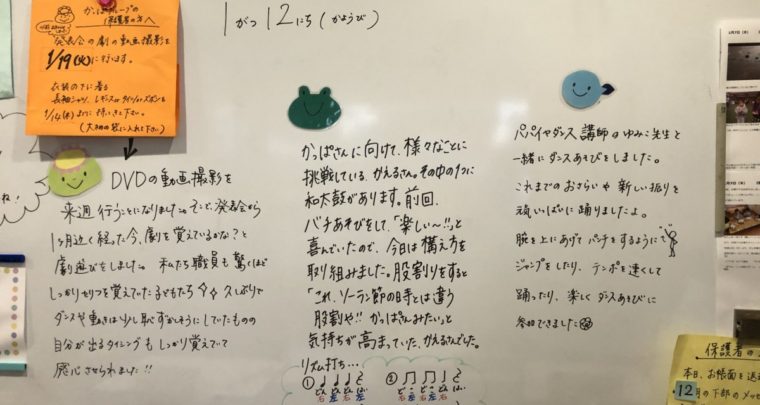 1がつ12にち(かようび)
かっぱグループの
保護者の方へ
発表会の劇の動画撮影を
1/19(火)に行います。
衣装の下に着る
長袖シャツ、レギンスorタイツorズボンを
1/14(木)までに持ってきて下さい。
(大和の袋に入れて下さい)
DVDの動画撮影を
来週行うことになりました。そこで、発表会から
1ヶ月近く経った今、劇を覚えているかな?と
劇遊びをしました。私たち職員も驚くほど
しっかりセリフを覚えていた子どもたち 久しぶりで
ダンスや動きは少し恥ずかしそうにしていたものの
自分が出るタイミングもしっかり覚えていて
感心させられました!!
かっぱさんに向けて、様々なことに
挑戦している、かえるさん。その中の1つに
和太鼓があります。前回、
バチあそびをして、「楽しい〜!!」と
喜んでいたので、今日は構え方を
取り組みました。股割りをすると
「これ、ソーラン節の時とは違う
股割や!! かっぱさんみたい」と
気持ちが高まっていた、かえるさんでした。
リズム打ち…
① どん どん どん ほい
右 左 右
② どこ どこ どん ほい
右左 右左 右
パパイヤダンス講師のゆみこ先生と
一緒にダンスあそびをしました。
これまでのおさらいや新しい振りを
元気いっぱいに踊りましたよ。
腕を上にあげてパンチをするように
ジャンプをしたり、テンポを速くして
踊ったり、楽しくダンスあそびに
参加できました
保護者の
本日、お帳面を
12月の下部のメッセ